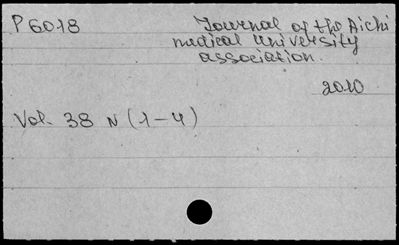 P6018
Journal of the Aichi
medical University
association.
2010
Vol. 38 N (1-4)